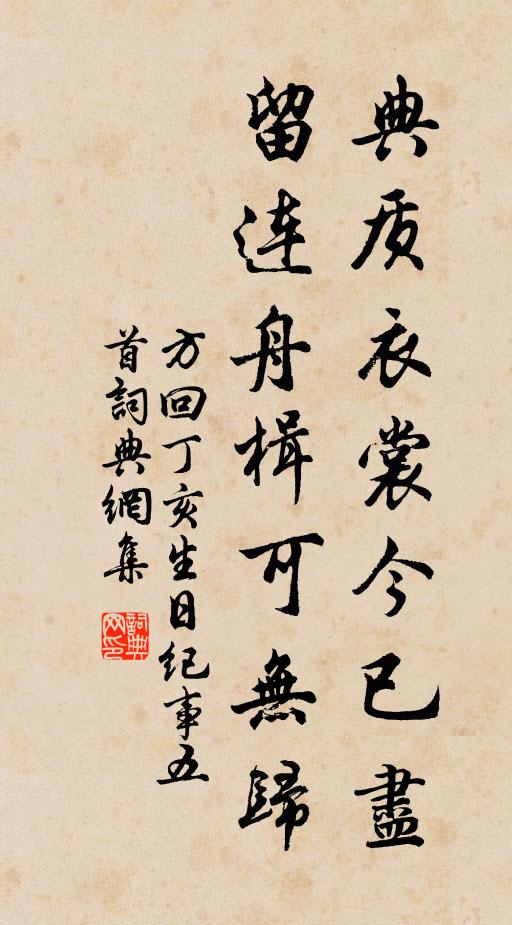 典质衣裳今已盡
留连舟楫可無歸
方回丁亥生日纪事五
首詞典網集
詞典
网印